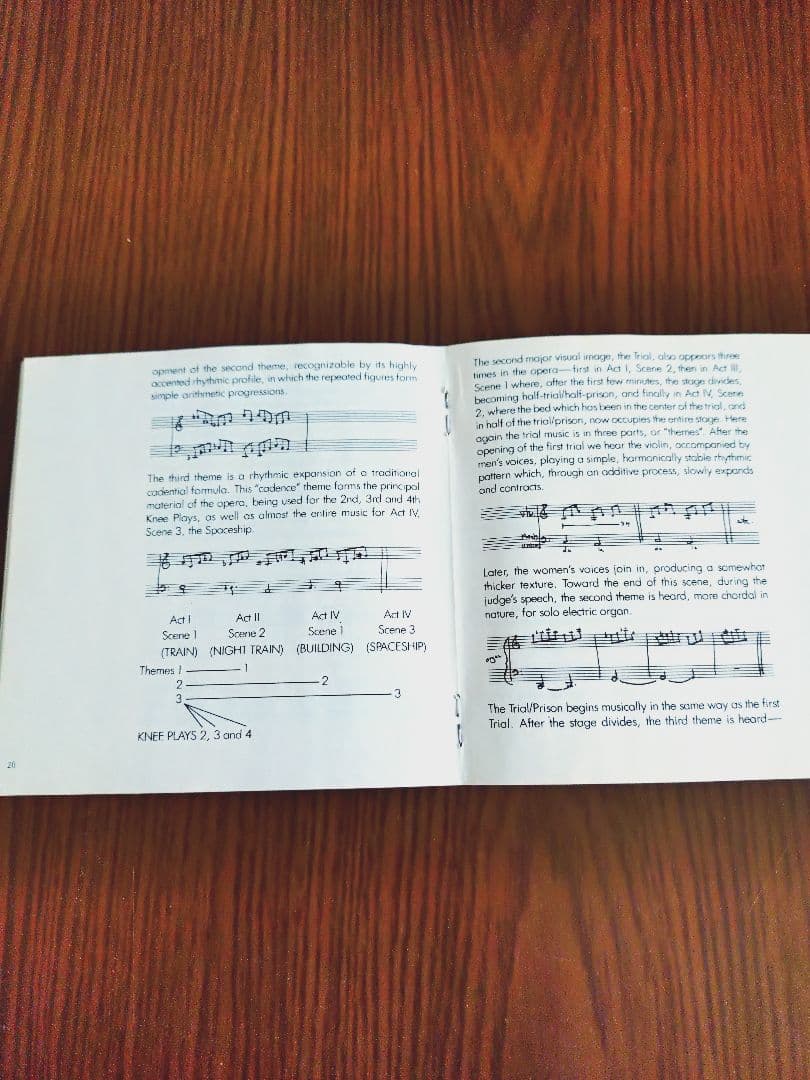 opment of the second theme, recognizable by its highly
accented rhythmic profile, in which the repeated figures form
simple arithmetic progressions.
The third theme is a rhythmic expansion of a traditional
cadential formula. This "cadence" theme forms the principal
material of the opera, being used for the 2nd, 3rd and 4th
Knee Plays, as well as almost the entire music for Act IV,
Scene 3, the Spaceship.
Act I Act II Act IV Act IV
Scene 1 Scene 2 Scene 1 Scene 3
(TRAIN) (NIGHT TRAIN) (BUILDING) (SPACESHIP)
Themes 1 1
2 2
3 3
KNEE PLAYS 2, 3 and 4
26
The second major visual image, the Trial, also appears three
times in the opera—first in Act I, Scene 2, then in Act III,
Scene 1 where, after the first few minutes, the stage divides,
becoming half-trial/half-prison, and finally in Act IV, Scene
2, where the bed which has been in the center of the trial, and
in half of the trial/prison, now occupies the entire stage. Here
again the trial music is in three parts, or "themes". After the
opening of the first trial we hear the violin, accompanied by
men's voices, playing a simple, harmonically stable rhythmic
pattern which, through an additive process, slowly expands
and contracts.
Later, the women's voices join in, producing a somewhat
thicker texture. Toward the end of this scene, during the
judge's speech, the second theme is heard, more chordal in
nature, for solo electric organ.
The Trial/Prison begins musically in the same way as the first
Trial. After the stage divides, the third theme is heard—